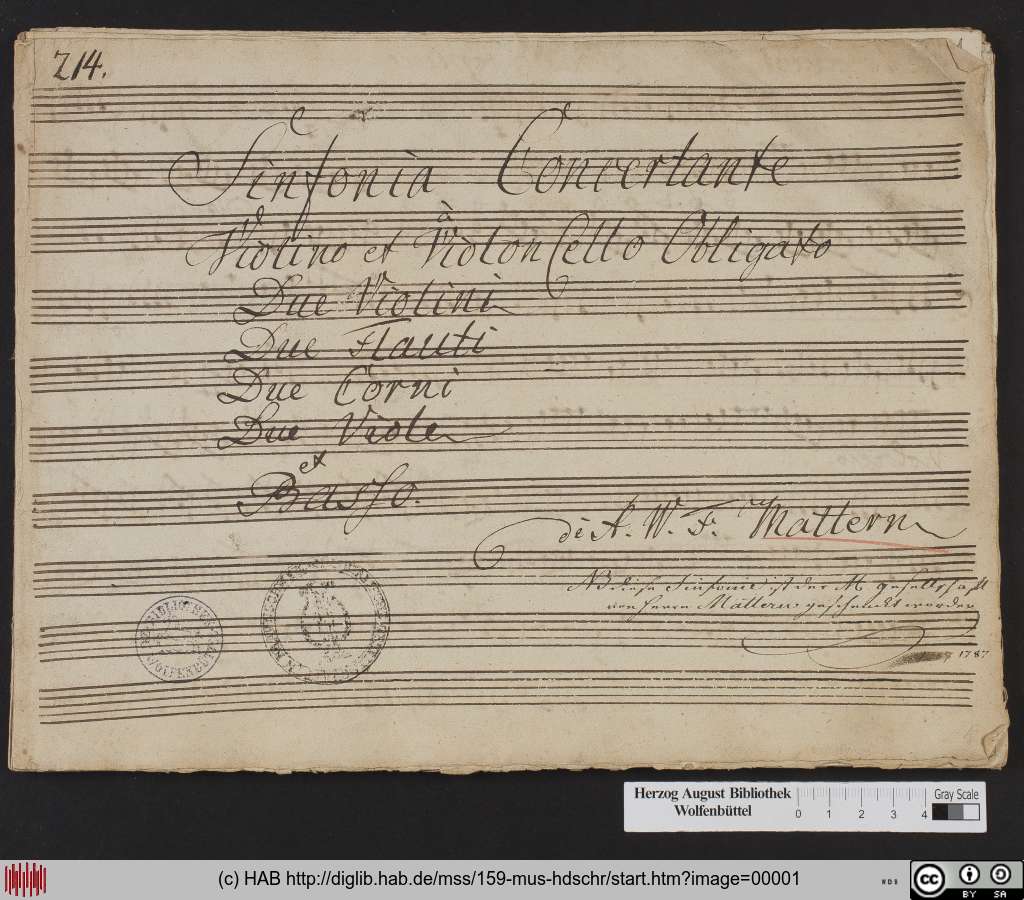 214.
Sinfonia Concertante
à
Violino et VioлonCello Obligato
Due Violini
Due Flauti
Due Corni
Due Viole
et
Basso.
di A. W. F. Mattern
NB diese Sinfonie ist der M. gesellschaft
von Herrn Mattern geschenckt worden
1787
Herzog August Bibliothek
Wolfenbüttel
Gray Scale
0 1 2 3 4
(c) HAB http://diglib.hab.de/mss/159-mus-hdschr/start.htm?image=00001
WDB
cc
BY SA